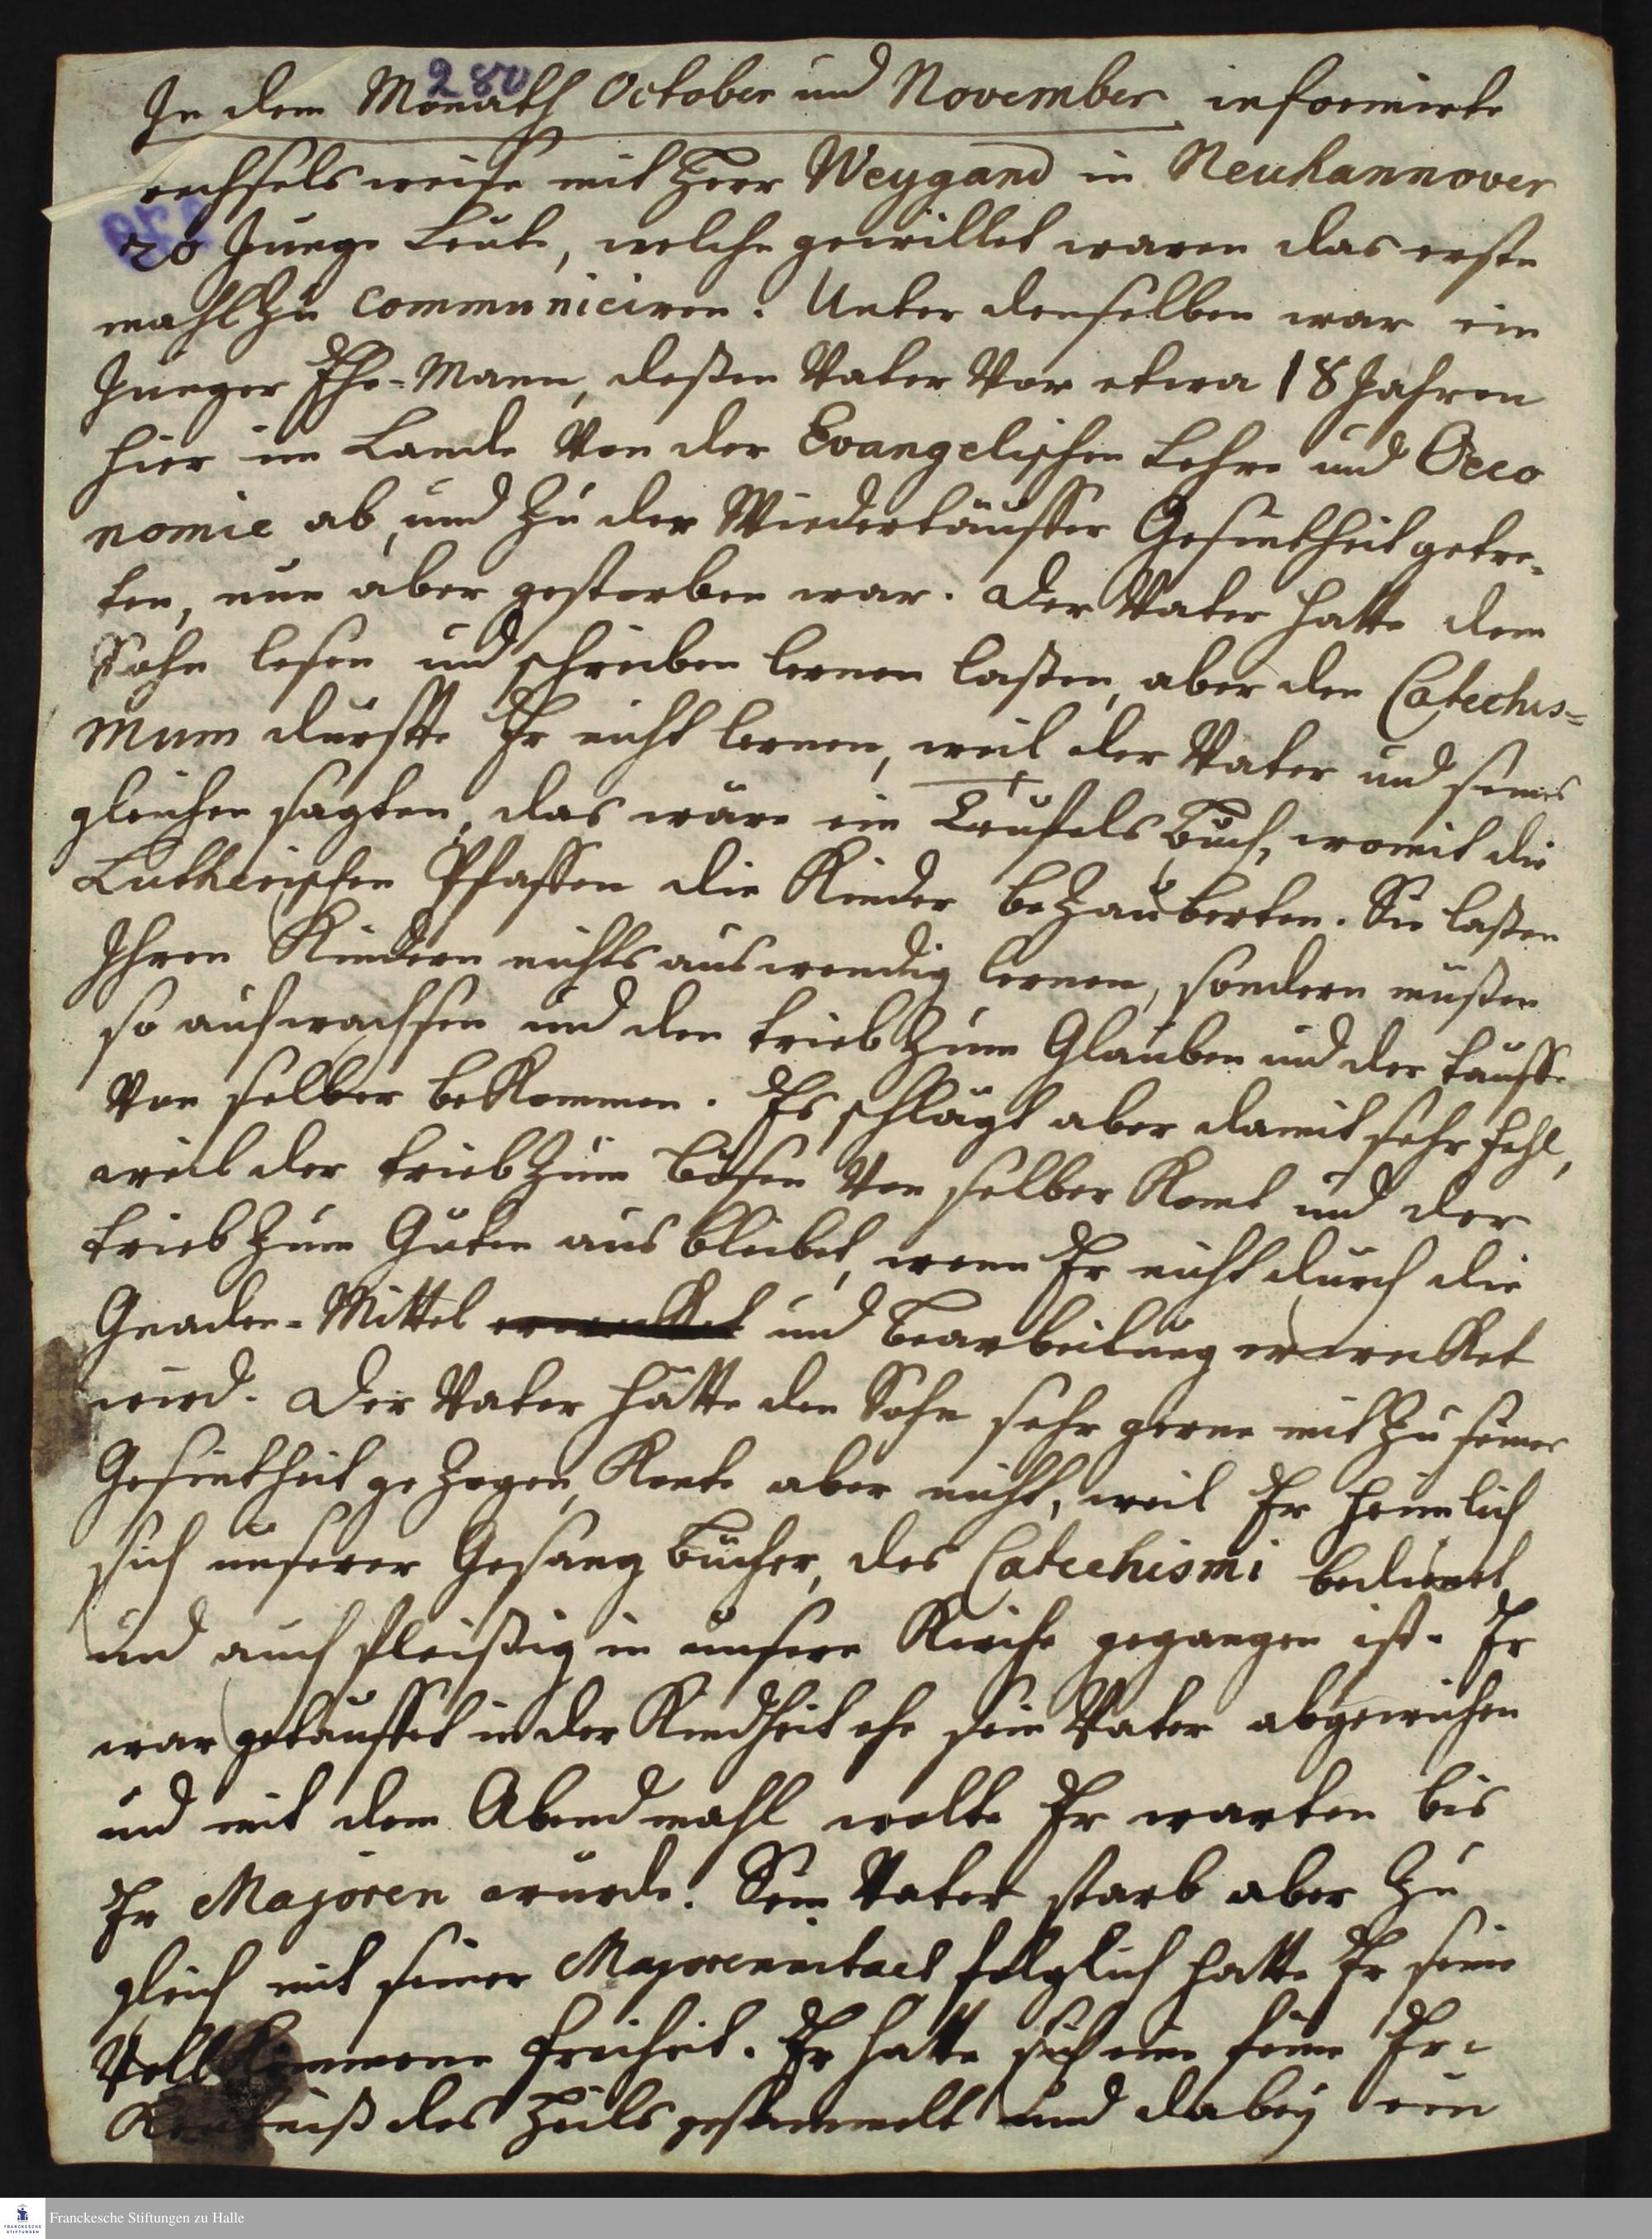 280
In dem Monath October und November informirte
wechselsweise mit Herr Weygand in Neuhannover
20 Junge Leute, welche gewillet waren das erste
mahl zu communiciren. Unter denselben war ein
Junger Ehe-Mann, deßen Vater Vor etwa 18 Jahren
hier im Lande Von der Evangelischen Lehre und Oeco
nomie ab, und zu der Wiedertäuffer Gesintheit getre-
ten, nun aber gestorben war. Der Vater hatte dem
Sohn lesen und schreiben lernen laßen, aber den Catechis=
mum durffte Er nicht lernen, weil der Vater und seines
gleichen sagten, das wäre ein Teufels Buch, womit die
Lutherischen Pfaffen die Kinder bezauberten. Sie laßen
Ihren Kindern nichts auswendig lernen, sondern müßen
so aufwachsen und den trieb zum Glauben und der tauffe
Von selber bekommen. Es schlägt aber damit sehr fehl,
weil der trieb zum Bösen Von selber Komt und der
trieb zum Guten aus bleibet, wenn Er nicht durch die
Gnaden-Mittel erwecket und Bearbeitung erwecket
wird. Der Vater hätte den Sohn sehr gerne mit zu seiner
Gesintheit gezogen, Konte aber nicht, weil Er heimlich
sich unserer Gesang Bücher, des Catechismi bedienet,
und auch fleißig in unsere Kirche gegangen ist. Er
war getauffet in der Kindheit ehe sein Vater abgewichen
und mit dem Abendmahl wolte Er warten bis
Er Majoren wurde. Sein Vater starb aber zu
gleich mit seiner Majorennitaet folglich hatte Er seine
Vollkommene Freiheit. Er hatte sich eine feine Er-
Kentniß des Heils gesammelt und dabey ein
Franckesche Stiftungen zu Halle